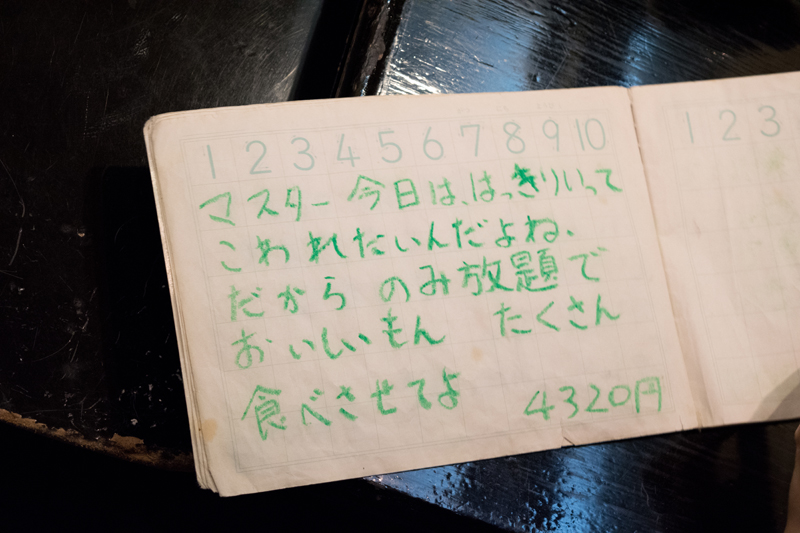 1 2 3 4 5 6 7 8 9 10
マスター 今日は、はっきりいって
こわれたいんだよね、
だから のみ放題で
おいしいもん たくさん
食べさせてよ 4320円
1 2 3